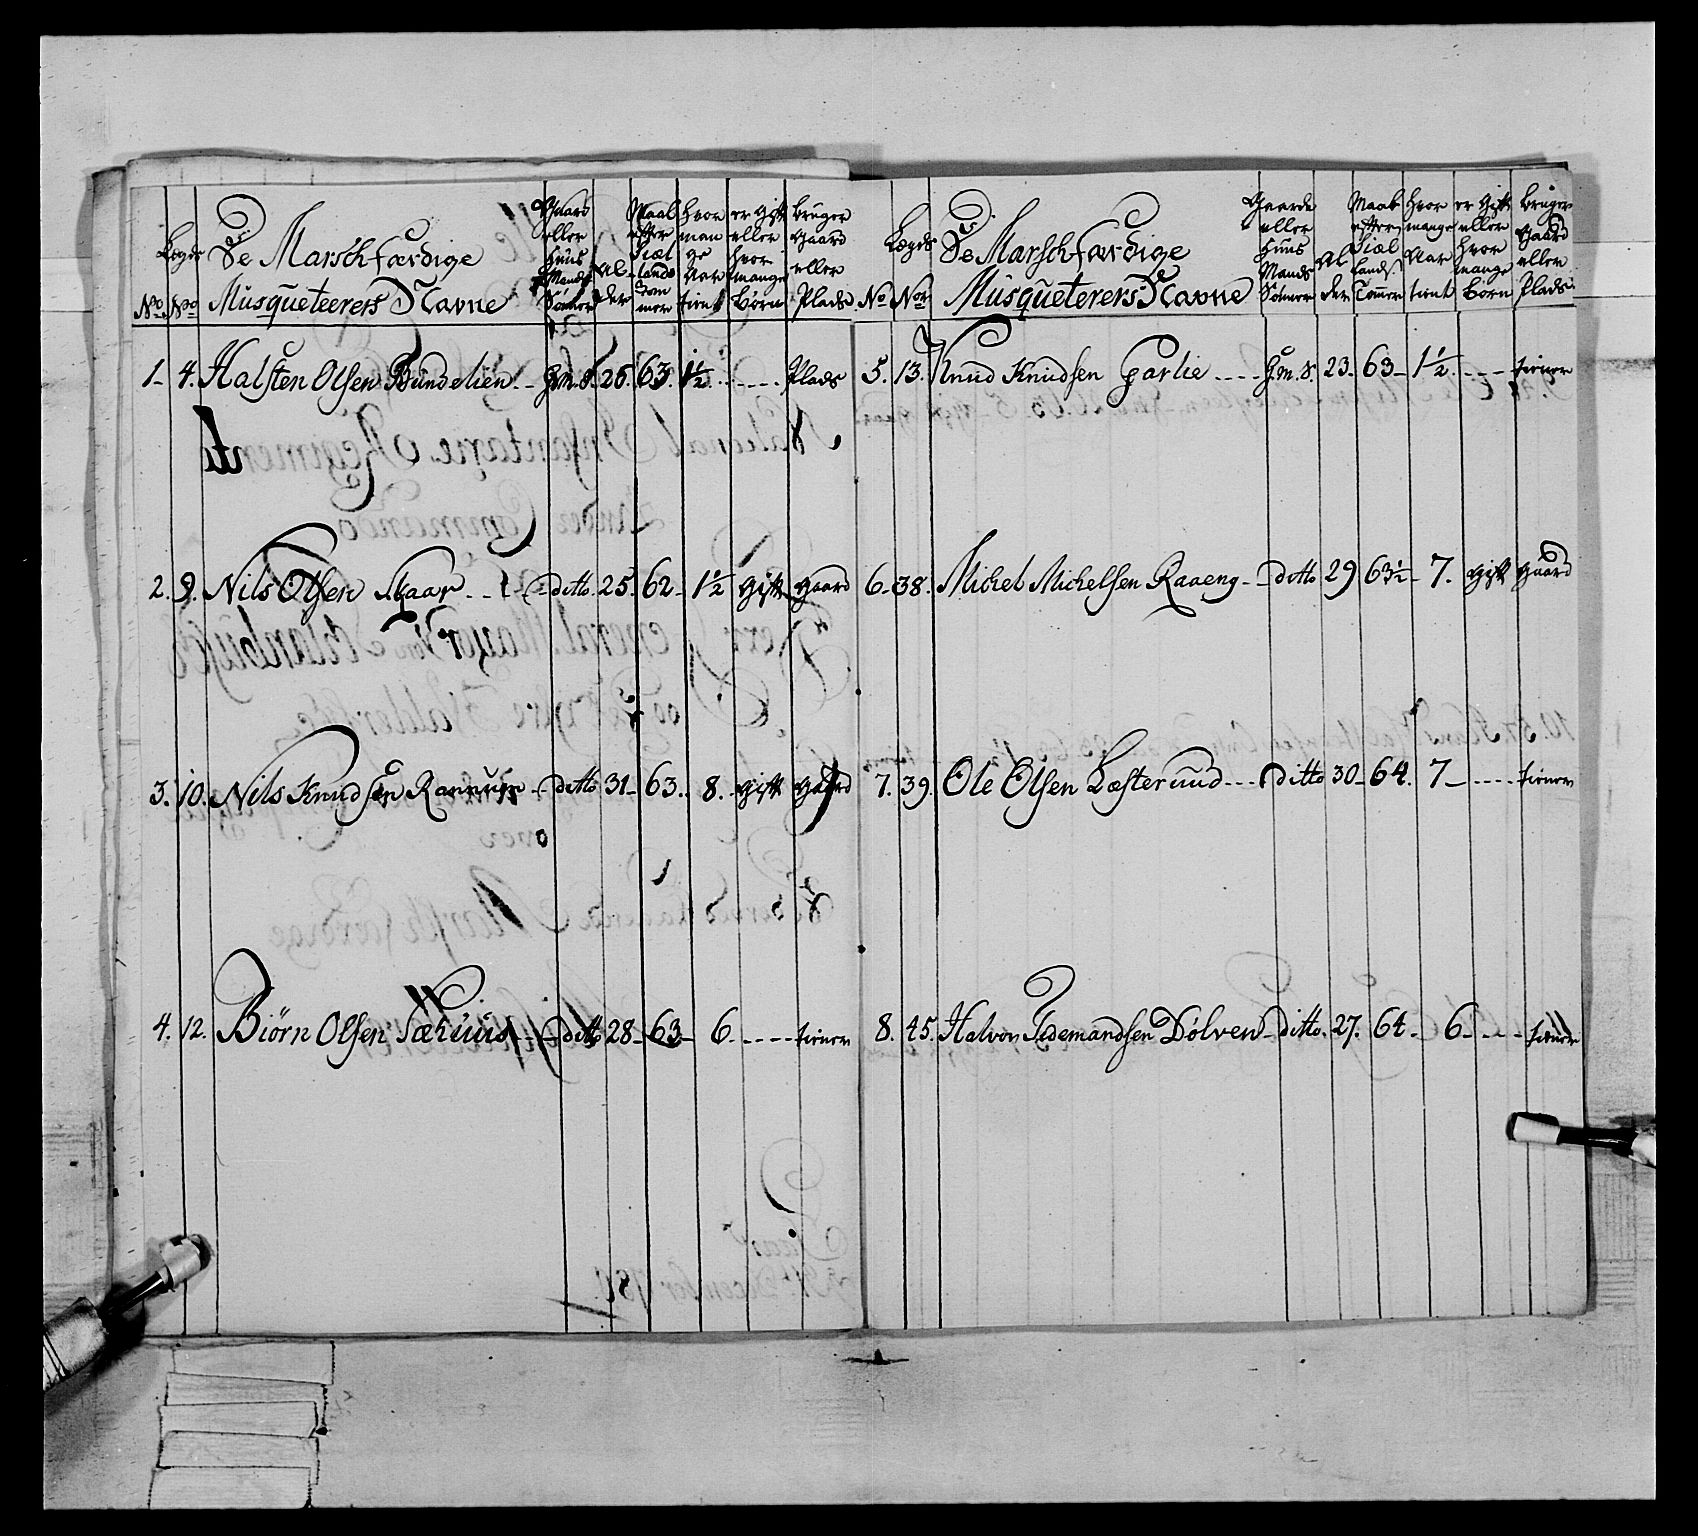 De Marschfærdige
Musqueteerers Navne
No Lægds No Gaard eller Huus Mands Sønner Alder Maal efter Siællands Tommer Hvor mange Aar tient er Gift eller Hvor mange Børn bruger Gaard eller Plads
1. 4. Halsten Olsen Bundelien H.m.S. 26. 63. 1½ Plads
2. 9. Nils Olsen Skaar ditto 25. 62 1½ gift gaard
3. 10. Nils Knudsen ditto 31 63. 8. gift gaard
4. 12. Biørn Olsen Sæhuus ditto 28 63 6 tiener
De Marschfærdige
Musqueterers Navne
No Lægds Nor Gaarde eller Huus Mands Sønner Alder Maal efter Siællands Tommer Hvor mange Aar tient er Gift eller Hvor mange Børn bruger Gaard eller Plads
5. 13. Knud Knudsen Garlie H.m.S. 23 63 1½ tiener
6 38. Michel Michelsen Raaeng ditto 29 63½ 7. gift gaard
7. 39. Ole Olsen Læsterud ditto 30 64. 7 tiener
8. 45. Halvor Tidemandsen Dølven ditto. 27. 64 6 tiener